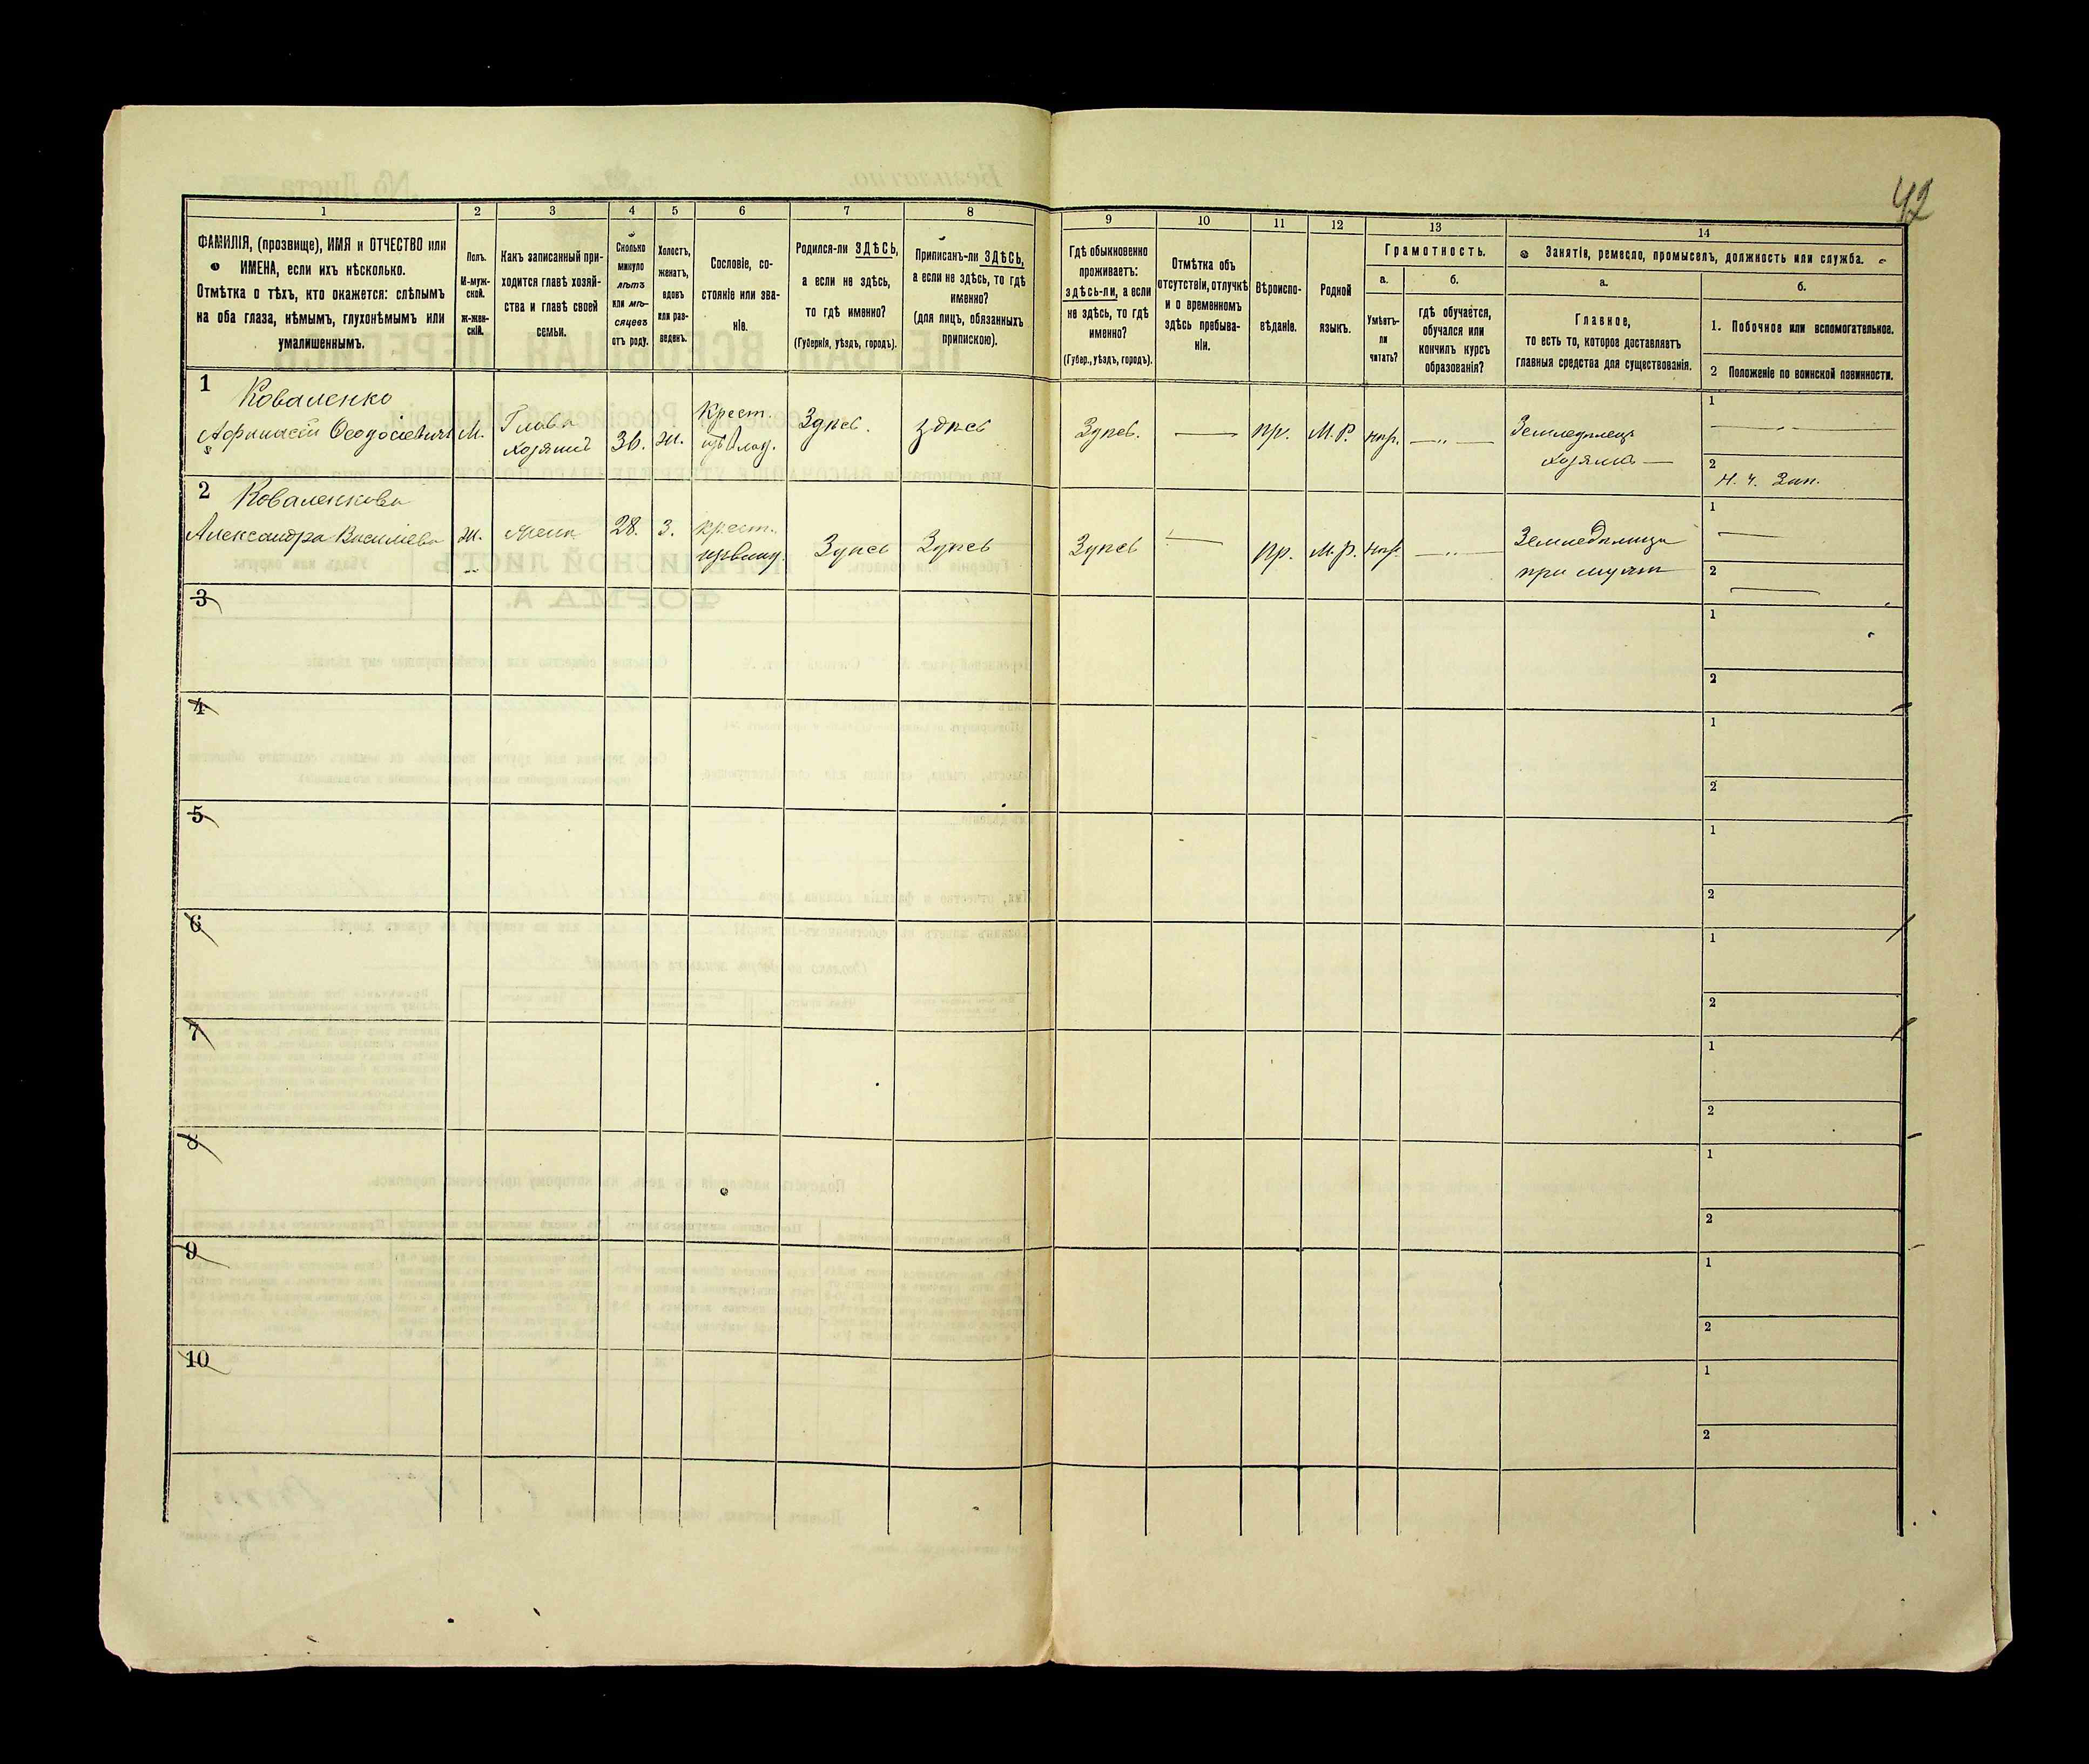 42
1 2 3 4 5 6 7 8 9 10 11 12 13 14
ФАМИЛІЯ, (прозвище), ИМЯ и ОТЧЕСТВО или
ИМЕНА, если ихъ нѣсколько.
Отмѣтка о тѣхъ, кто окажется: слѣпымъ
на оба глаза, нѣмымъ, глухонѣмымъ или
умалишеннымъ.
Полъ.
М-муж-
ской.
Ж-жен-
скій.
Какъ записанный при-
ходится главѣ хозяй-
ства и главѣ своей
семьи.
Сколько
минуло
лѣтъ
или мѣ-
сяцевъ
отъ роду.
Холостъ,
женатъ,
вдовъ
или раз-
веденъ.
Сословіе, со-
стояніе или зва-
ніе.
Родился-ли ЗДѢСЬ,
а если не здѣсь,
то гдѣ именно?
(Губернія, уѣздъ, городъ).
Приписанъ-ли ЗДѢСЬ,
а если не здѣсь, то гдѣ
именно?
(для лицъ, обязанныхъ
припискою).
Гдѣ обыкновенно
проживаетъ:
здѣсь-ли, а если
не здѣсь, то гдѣ
именно?
(Губер., уѣздъ, городъ).
Отмѣтка объ
отсутствіи, отлучкѣ
и о временномъ
здѣсь пребыва-
ніи.
Вѣроиспо-
вѣданіе.
Родной
языкъ.
Грамотность.
а.
Умѣетъ-
ли
читать?
б.
гдѣ обучается,
обучался или
кончилъ курсъ
образованія?
Занятіе, ремесло, промыселъ, должность или служба.
а.
Главное,
то есть то, которое доставляетъ
главныя средства для существованія.
б.
1. Побочное или вспомогательное.
2 Положеніе по воинской повинности.
1
Коваленко
Афанасій Ѳеодосіевичъ
М.
Глава
хозяинъ
30.
ж.
Крест.
изъ влад.
Здѣсь.
здѣсь
Здѣсь.
—
пр.
М. Р.
нѣт.
— „ —
Земледѣлецъ
хозяинъ —
1
2
Н. ч. Зап.
2
Коваленкова
Александра Василіева
ж.
жена
28.
З.
крест.
изъ влад.
Здѣсь
Здѣсь
Здѣсь
—
пр.
М. Р.
нѣт.
— „ —
Земледѣлица
при мужѣ
1
—
2
—
3
1
2
4
1
2
5
1
2
6
1
2
7
1
2
8
1
2
9
1
2
10
1
2